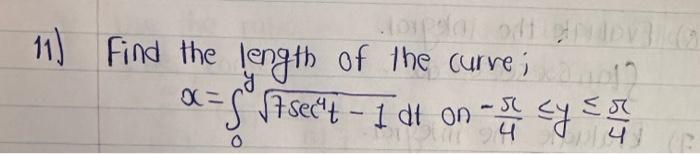 11) Find the length of the curve;
x = ∫₀ʸ √(7sec⁴t - 1) dt on -π/4 ≤ y ≤ π/4